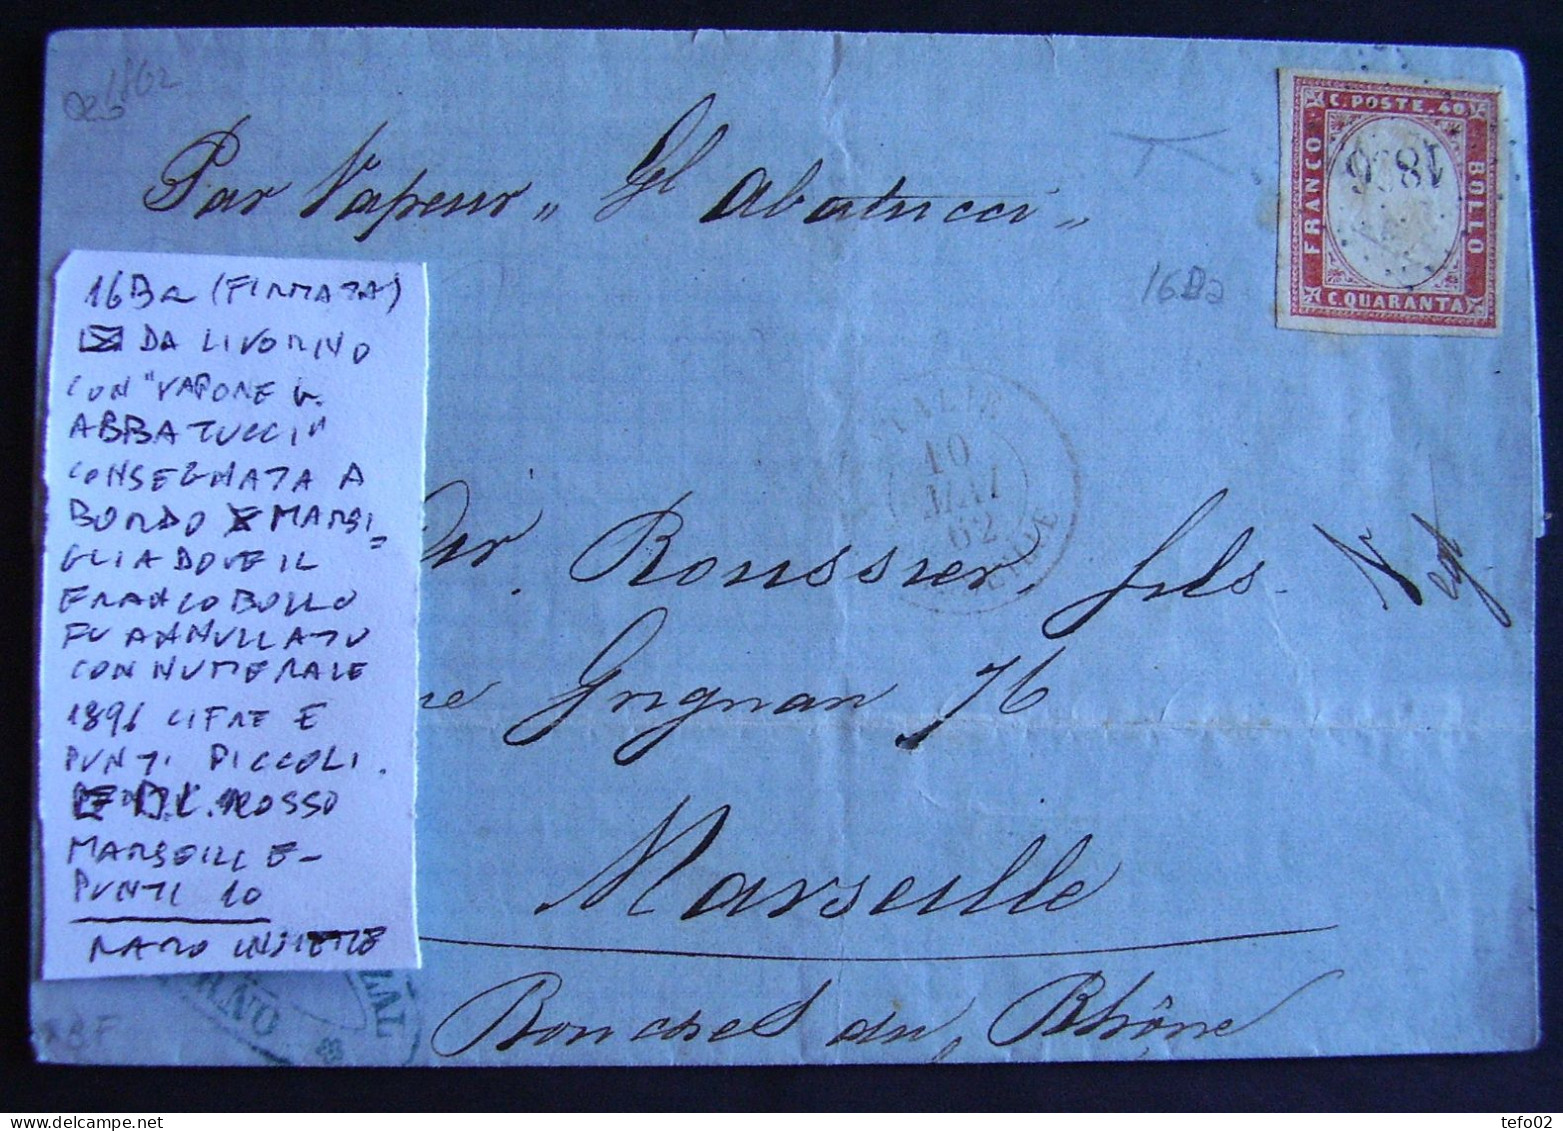 1862
Par Vapeur „ Gl Abatucci „
C. POSTE. 40
FRANCO
BOLLO
C. QUARANTA
1896
16Da
ITALIE
10
MAI
62
MARSEILLE
Roussier, fils. Negt
Grignan 76
Marseille
Bouches du Rhône
16Ba (FIRMATA)
DA LIVORNO
CON "VAPORE G.
ABBATUCCI"
CONSEGNATA A
BORDO X MARSI=
GLIA DOVE IL
FRANCOBOLLO
FU ANNULLATO
CON NUMERALE
1896 CIFRE E
PUNTI PICCOLI.
ROSSO
MARSEILLE-
PUNTI 10
RARO INSIEME
tefo02